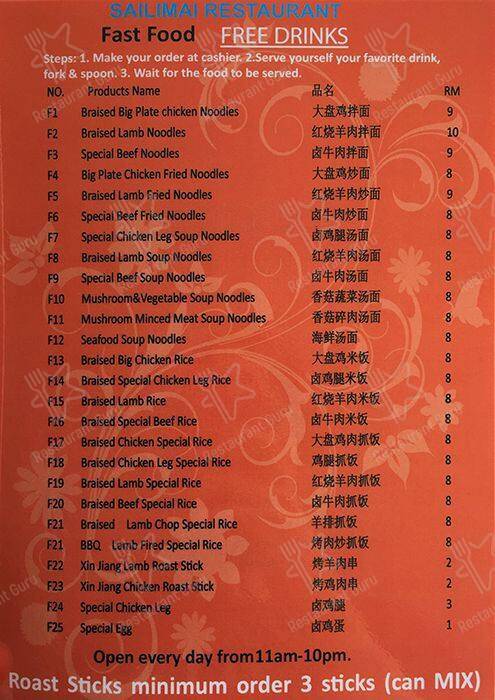 SAILIMAI RESTAURANT
Fast Food FREE DRINKS
Steps: 1. Make your order at cashier. 2.Serve yourself your favorite drink,
fork & spoon. 3. Wait for the food to be served.
NO. Products Name 品名 RM
F1 Braised Big Plate chicken Noodles 大盘鸡拌面 9
F2 Braised Lamb Noodles 红烧羊肉拌面 10
F3 Special Beef Noodles 卤牛肉拌面 9
F4 Big Plate Chicken Fried Noodles 大盘鸡炒面 8
F5 Braised Lamb Fried Noodles 红烧羊肉炒面 9
F6 Special Beef Fried Noodles 卤牛肉炒面 8
F7 Special Chicken Leg Soup Noodles 卤鸡腿汤面 8
F8 Braised Lamb Soup Noodles 红烧羊肉汤面 8
F9 Special Beef Soup Noodles 卤牛肉汤面 8
F10 Mushroom&Vegetable Soup Noodles 香菇蔬菜汤面 8
F11 Mushroom Minced Meat Soup Noodles 香菇碎肉汤面 8
F12 Seafood Soup Noodles 海鲜汤面 8
F13 Braised Big Chicken Rice 大盘鸡米饭 8
F14 Braised Special Chicken Leg Rice 卤鸡腿米饭 8
F15 Braised Lamb Rice 红烧羊肉米饭 8
F16 Braised Special Beef Rice 卤牛肉米饭 8
F17 Braised Chicken Special Rice 大盘鸡肉抓饭 8
F18 Braised Chicken Leg Special Rice 鸡腿抓饭 8
F19 Braised Lamb Special Rice 红烧羊肉抓饭 8
F20 Braised Beef Special Rice 卤牛肉抓饭 8
F21 Braised Lamb Chop Special Rice 羊排抓饭 8
F21 BBQ Lamb Fired Special Rice 烤肉炒抓饭 8
F22 Xin Jiang Lamb Roast Stick 烤羊肉串 2
F23 Xin Jiang Chicken Roast Stick 烤鸡肉串 2
F24 Special Chicken Leg 卤鸡腿 3
F25 Special Egg 卤鸡蛋 1
Open every day from11am-10pm.
Roast Sticks minimum order 3 sticks (can MIX)